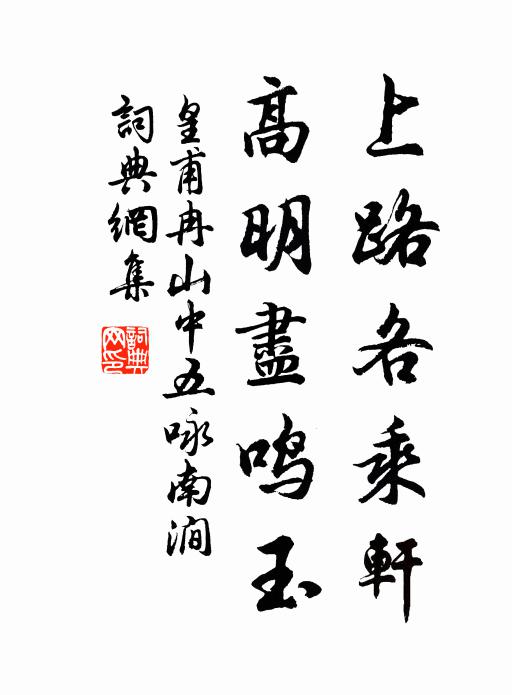 上路各乘軒
高明盡鳴玉
皇甫冉山中五咏南澗
詞典網集
詞典网印